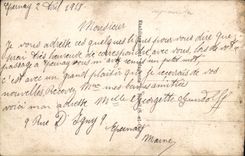 Epernay 2 Avril 1918
Monsieur
Je vous adresse ces quelques lignes pour vous dire que
je très heureuse de correspondre avec vous,
passage à Epernay vous m'avez un petit mot,
c'est avec un grand plaisir que je recevrais de vos
nouvelles, Recevez Mes amitiés
voici mon adresse Mlle Georgette
9 Rue D'Igny 9
Epernay
Marne